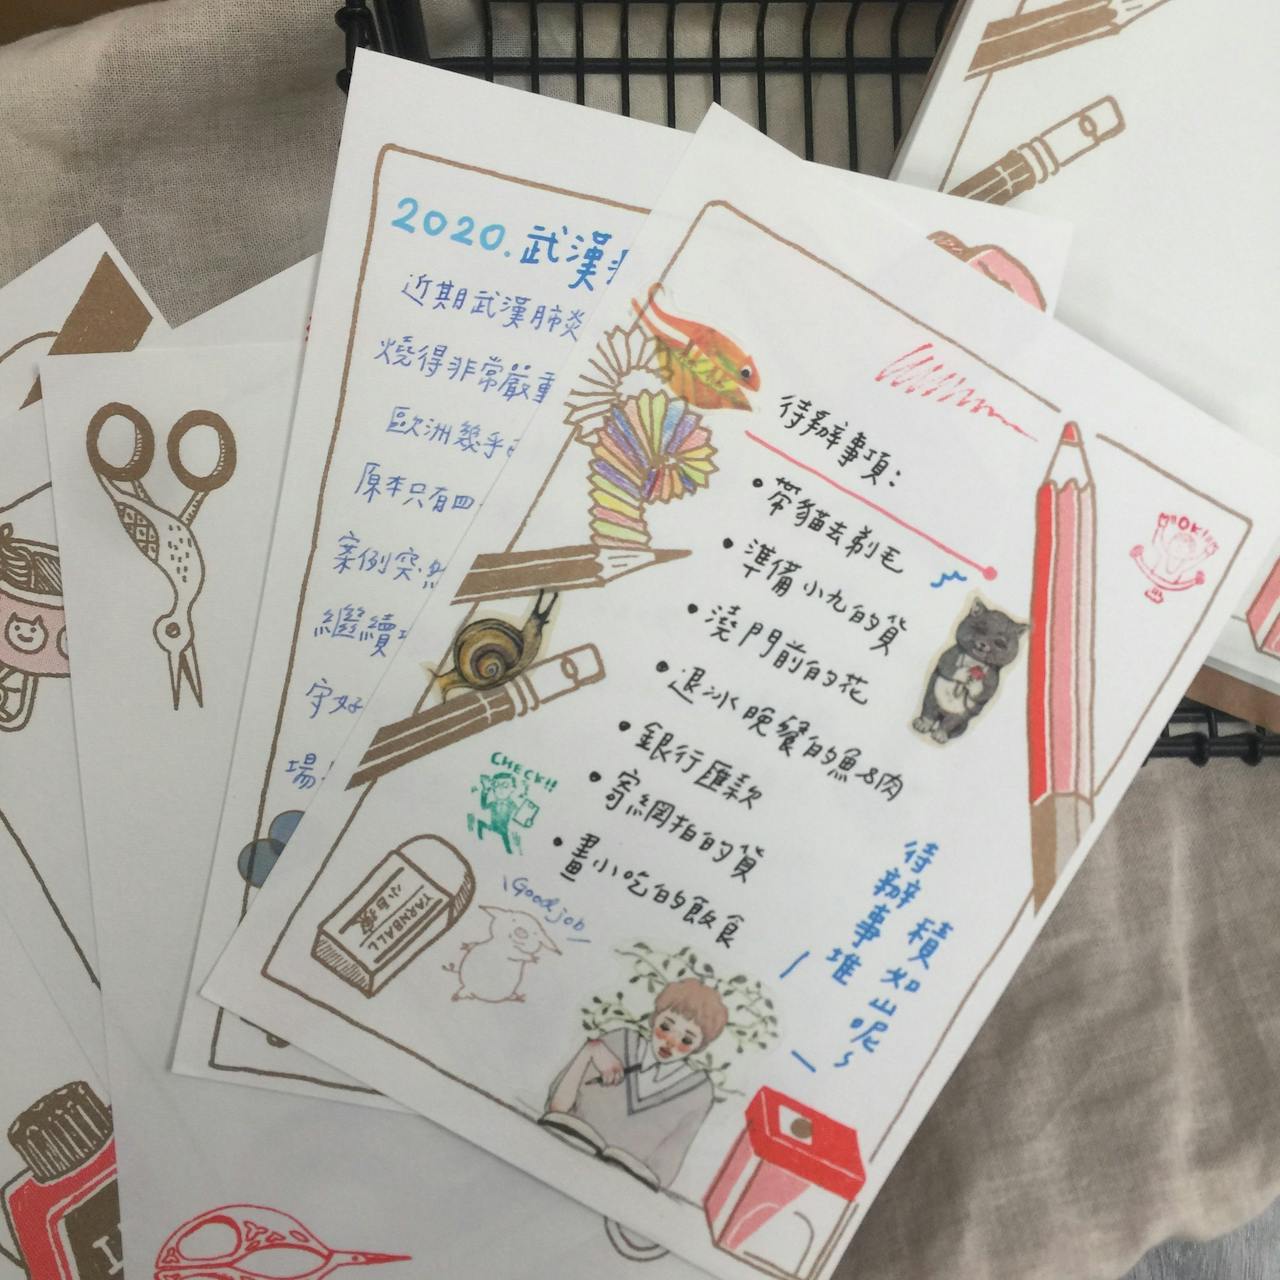 2020.武漢
近期武漢肺炎
燒得非常嚴重
歐洲幾乎
原本只有四
案例突然
繼續
守好
場
待辦事項:
•帶貓去剃毛
•準備小九的貨
•澆門前的花
•退冰晚餐的魚&肉
•銀行匯款
•寄網拍的貨
•畫小吃的飯食
待辦事堆
積如山呢~
OK!
CHECK!!
Good job
YARNBALL